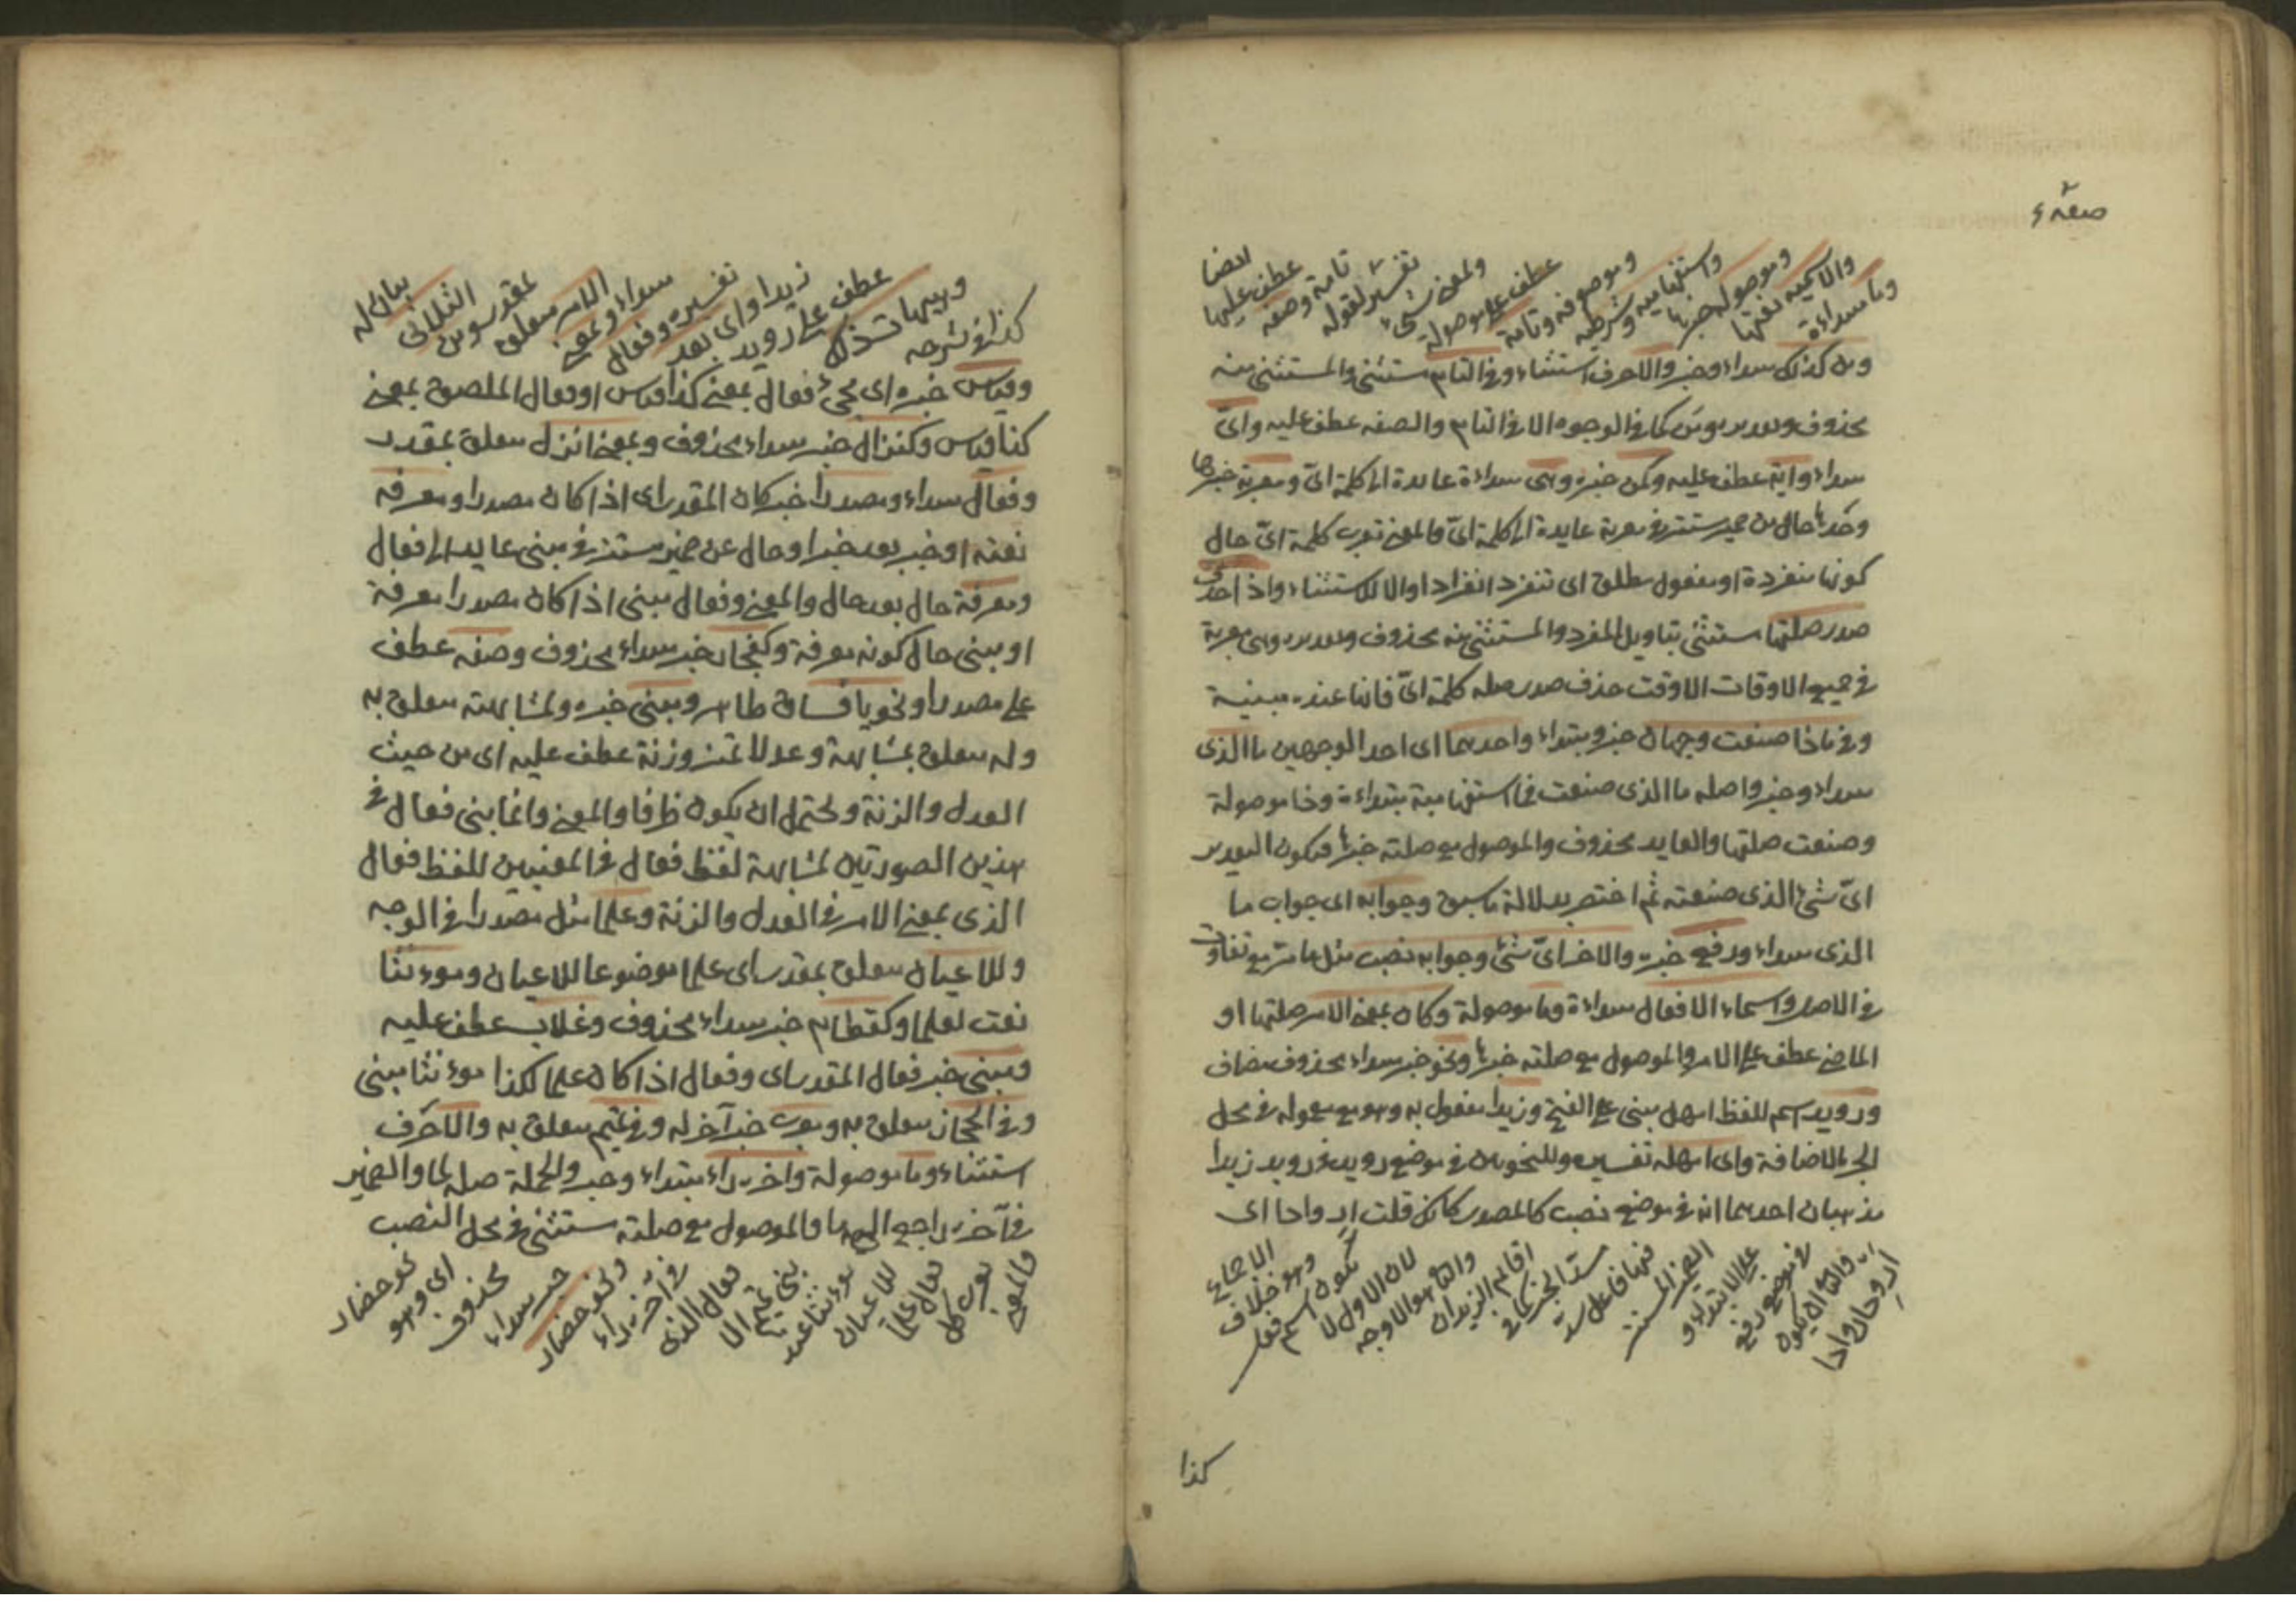 وما مبتداءة
والاسمية نعتها
وموصولة خبرها
واستفهامية وشرطية
وموصوفة وتامة
عطف على موصولة
ولمعنى شيء
تفسير لقوله
تامة وصفة
عطف عليها
ايضا
ومن كذلك مبتداء وخبر والا حرف استثناء وفى التام مستثنى والمستثنى منه
محذوف وتقديره ومن كما فى الوجوه الا فى التام والصفه عطف عليه واىّ
مبتداء واية عطف عليه وكمن خبره وهى مبتداءة عايدة الى كلمة اىّ ومعربة خبرها
وحدها حال من ضمير مستتر فى معربة عايدة الى كلمة اىّ والمعنى تعرب كلمة اىّ حال
كونها منفردة او مفعول مطلق اى تنفرد انفرادا والا للاستثناء واذا حذف
صدر صلتها مستثنى بتاويل المفرد والمستثنى منه محذوف وتقديره وهى معربة
فى جميع الاوقات الا وقت حذف صدر صله كلمة اىّ فانها عنده مبنية
وفى ماذا صنعت وجهان خبر ومبتداء واحدهما اى احد الوجهين ما الذى
مبتداء وخبر واصله ما الذى صنعت فما استفهامية مبتداءة وذا موصولة
وصنعت صلتها والعايد محذوف والموصول مع صلته خبرها فيكون التقدير
اىّ شئ الذى صنعته ثم اختصر بدلالة ما سبق وجوابه اى جواب ما
الذى مبتداء ورفع خبره والاخر اىّ شئ وجوابه نصب مثل ما مر مع تفاوت
فى الاصل واسماء الافعال مبتداءة وما موصولة وكان بمعنى الامر صلتها او
الماضى عطف على الامر والموصول مع صلته خبرها ونحو خبر مبتداء محذوف مضاف
ورويد اسم للفظ امهل مبنى على الفتح وزيدا مفعول به وهو مع معموله فى محل
الجر بالاضافة واى امهله تفسيره وللنحويين فى موضع رويد فى رويد زيدا
مذهبان احدهما انه فى موضع نصب كالمصدر كانك قلت ارواحا اى
والثانى ان يكون
فى موضع رفع
على الابتداء و
الضمير المستتر
فيها فاعل سد
مسدّ الخبر كما فى
اقائم الزيدان
والثانى هو الاوجه
لان الاول لا
يكون اسم فعل
وهو خلاف
الاجماع
كذا
كذا فى شرحه
عطف على رويد
زيدا واى بعد
تفسيره وفعال
مبتداء وبمعنى
الامر متعلق
الثلاثى
بيان له
وقياس خبره اى مجئ فعال بمعنى كذا قياس او فعال الملصوق بمعنى
كذا قياس وكنزال خبر مبتداء محذوف وبمعنى انزل متعلق بمقدر
وفعال مبتداء ومصدرا خبر كان المقدر اى اذا كان مصدرا ومعرفة
نعته او خبر بعد خبر او حال عن ضمير مستتر فى مبنى عايد الى فعال
ومعرفة حال بعد حال والمعنى وفعال مبنى اذا كان مصدرا معرفة
او مبنى حال كونه معرفة وكفجار خبر مبتداء محذوف وصفه عطف
على مصدرا ونحو يا فساق ظاهر ومبنى خبره ولمشابهته متعلق به
وله متعلق بمشابهة وعدلا تميز وزنة عطف عليه اى من حيث
العدل والزنة ويحتمل ان يكون ظرفا والمعنى وانما بنى فعال فى
هذين الصورتين لمشابهة لفظ فعال فى المعنيين للفظ فعال
الذى بمعنى الامر فى العدل والزنة وعلما مثل مصدرا فى الوجه
وللاعيان متعلق بمقدر اى علما موضوعا للاعيان ومؤنثا
نعت لعلما وكقطام خبر مبتداء محذوف وغلاب عطف عليه
ومبنى خبر فعال المقدر اى وفعال اذا كان علما لكذا مؤنثا مبنى
وفى الحجاز متعلق به ومعرب خبر آخر له وفى تميم متعلق به والا حرف
استثناء وما موصولة واخره راء مبتداء وخبر والجملة صله لما والضمير
فى آخره راجع الى ما والموصول مع صلته مستثنى فى محل النصب
والمعنى
يعرب كل
فعال علما
للاعيان
مؤنثا عند
بنى تميم الا
فعال الذى
فى آخره راء
ونحو حضار
خبر مبتداء
محذوف
اى وهو
نحو حضار